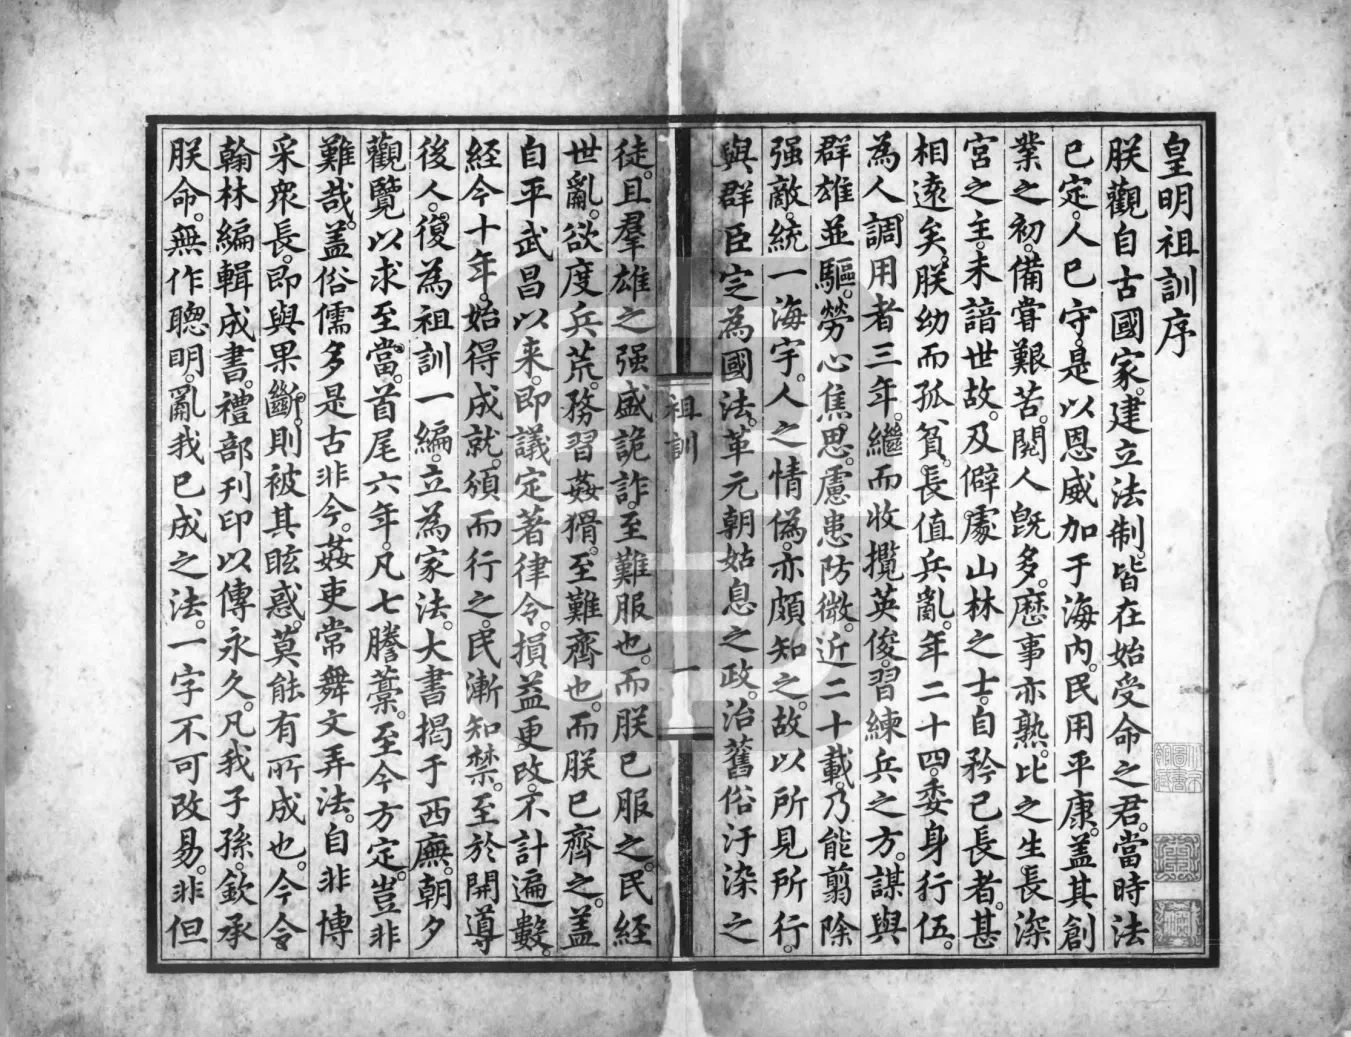 皇明祖訓序
朕觀自古國家。建立法制。皆在始受命之君。當時法
已定。人已守。是以恩威加于海內。民用平康。蓋其創
業之初。備嘗艱苦。閱人旣多。歷事亦熟。比之生長深
宮之主。未諳世故。及僻處山林之士。自矜己長者。甚
相遠矣。朕幼而孤貧。長值兵亂。年二十四。委身行伍。
為人調用者三年。繼而收攬英俊。習練兵之方。謀與
群雄並驅。勞心焦思。慮患防微。近二十載。乃能剪除
强敵。統一海宇。人之情偽。亦頗知之。故以所見所行。
與群臣定為國法。革元朝姑息之政。治舊俗汙染之
祖訓
一
徒。且羣雄之强盛詭詐。至難服也。而朕已服之。民經
世亂。欲度兵荒。務習姦猾。至難齊也。而朕已齊之。蓋
自平武昌以来。即議定著律令。損益更改。不計遍數。
經今十年。始得成就。頒而行之。民漸知禁。至於開導
後人。復為祖訓一編。立為家法。大書揭于西廡。朝夕
觀覽。以求至當。首尾六年。凡七謄藁。至今方定。豈非
難哉。蓋俗儒多是古非今。姦吏常舞文弄法。自非博
采衆長。即與果斷。則被其眩惑。莫能有所成也。今令
翰林編輯成書。禮部刊印以傳永久。凡我子孫。欽承
朕命。無作聰明。亂我已成之法。一字不可改易。非但